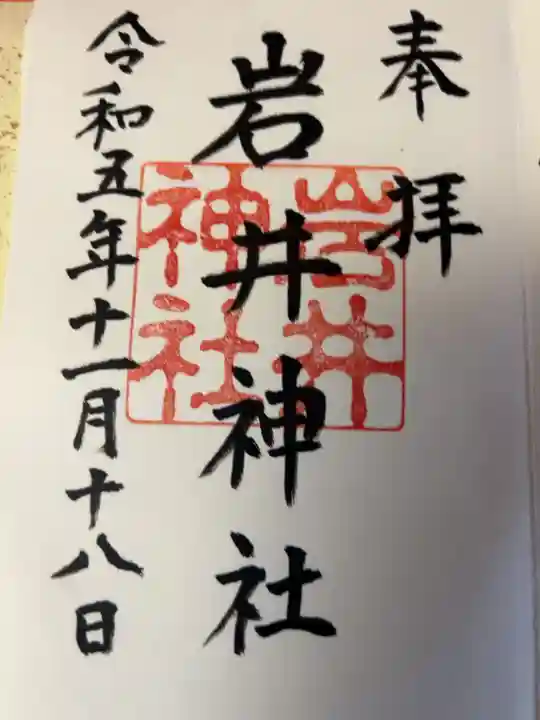 奉拝
岩井神社
岩井神社
令和五年十一月十八日